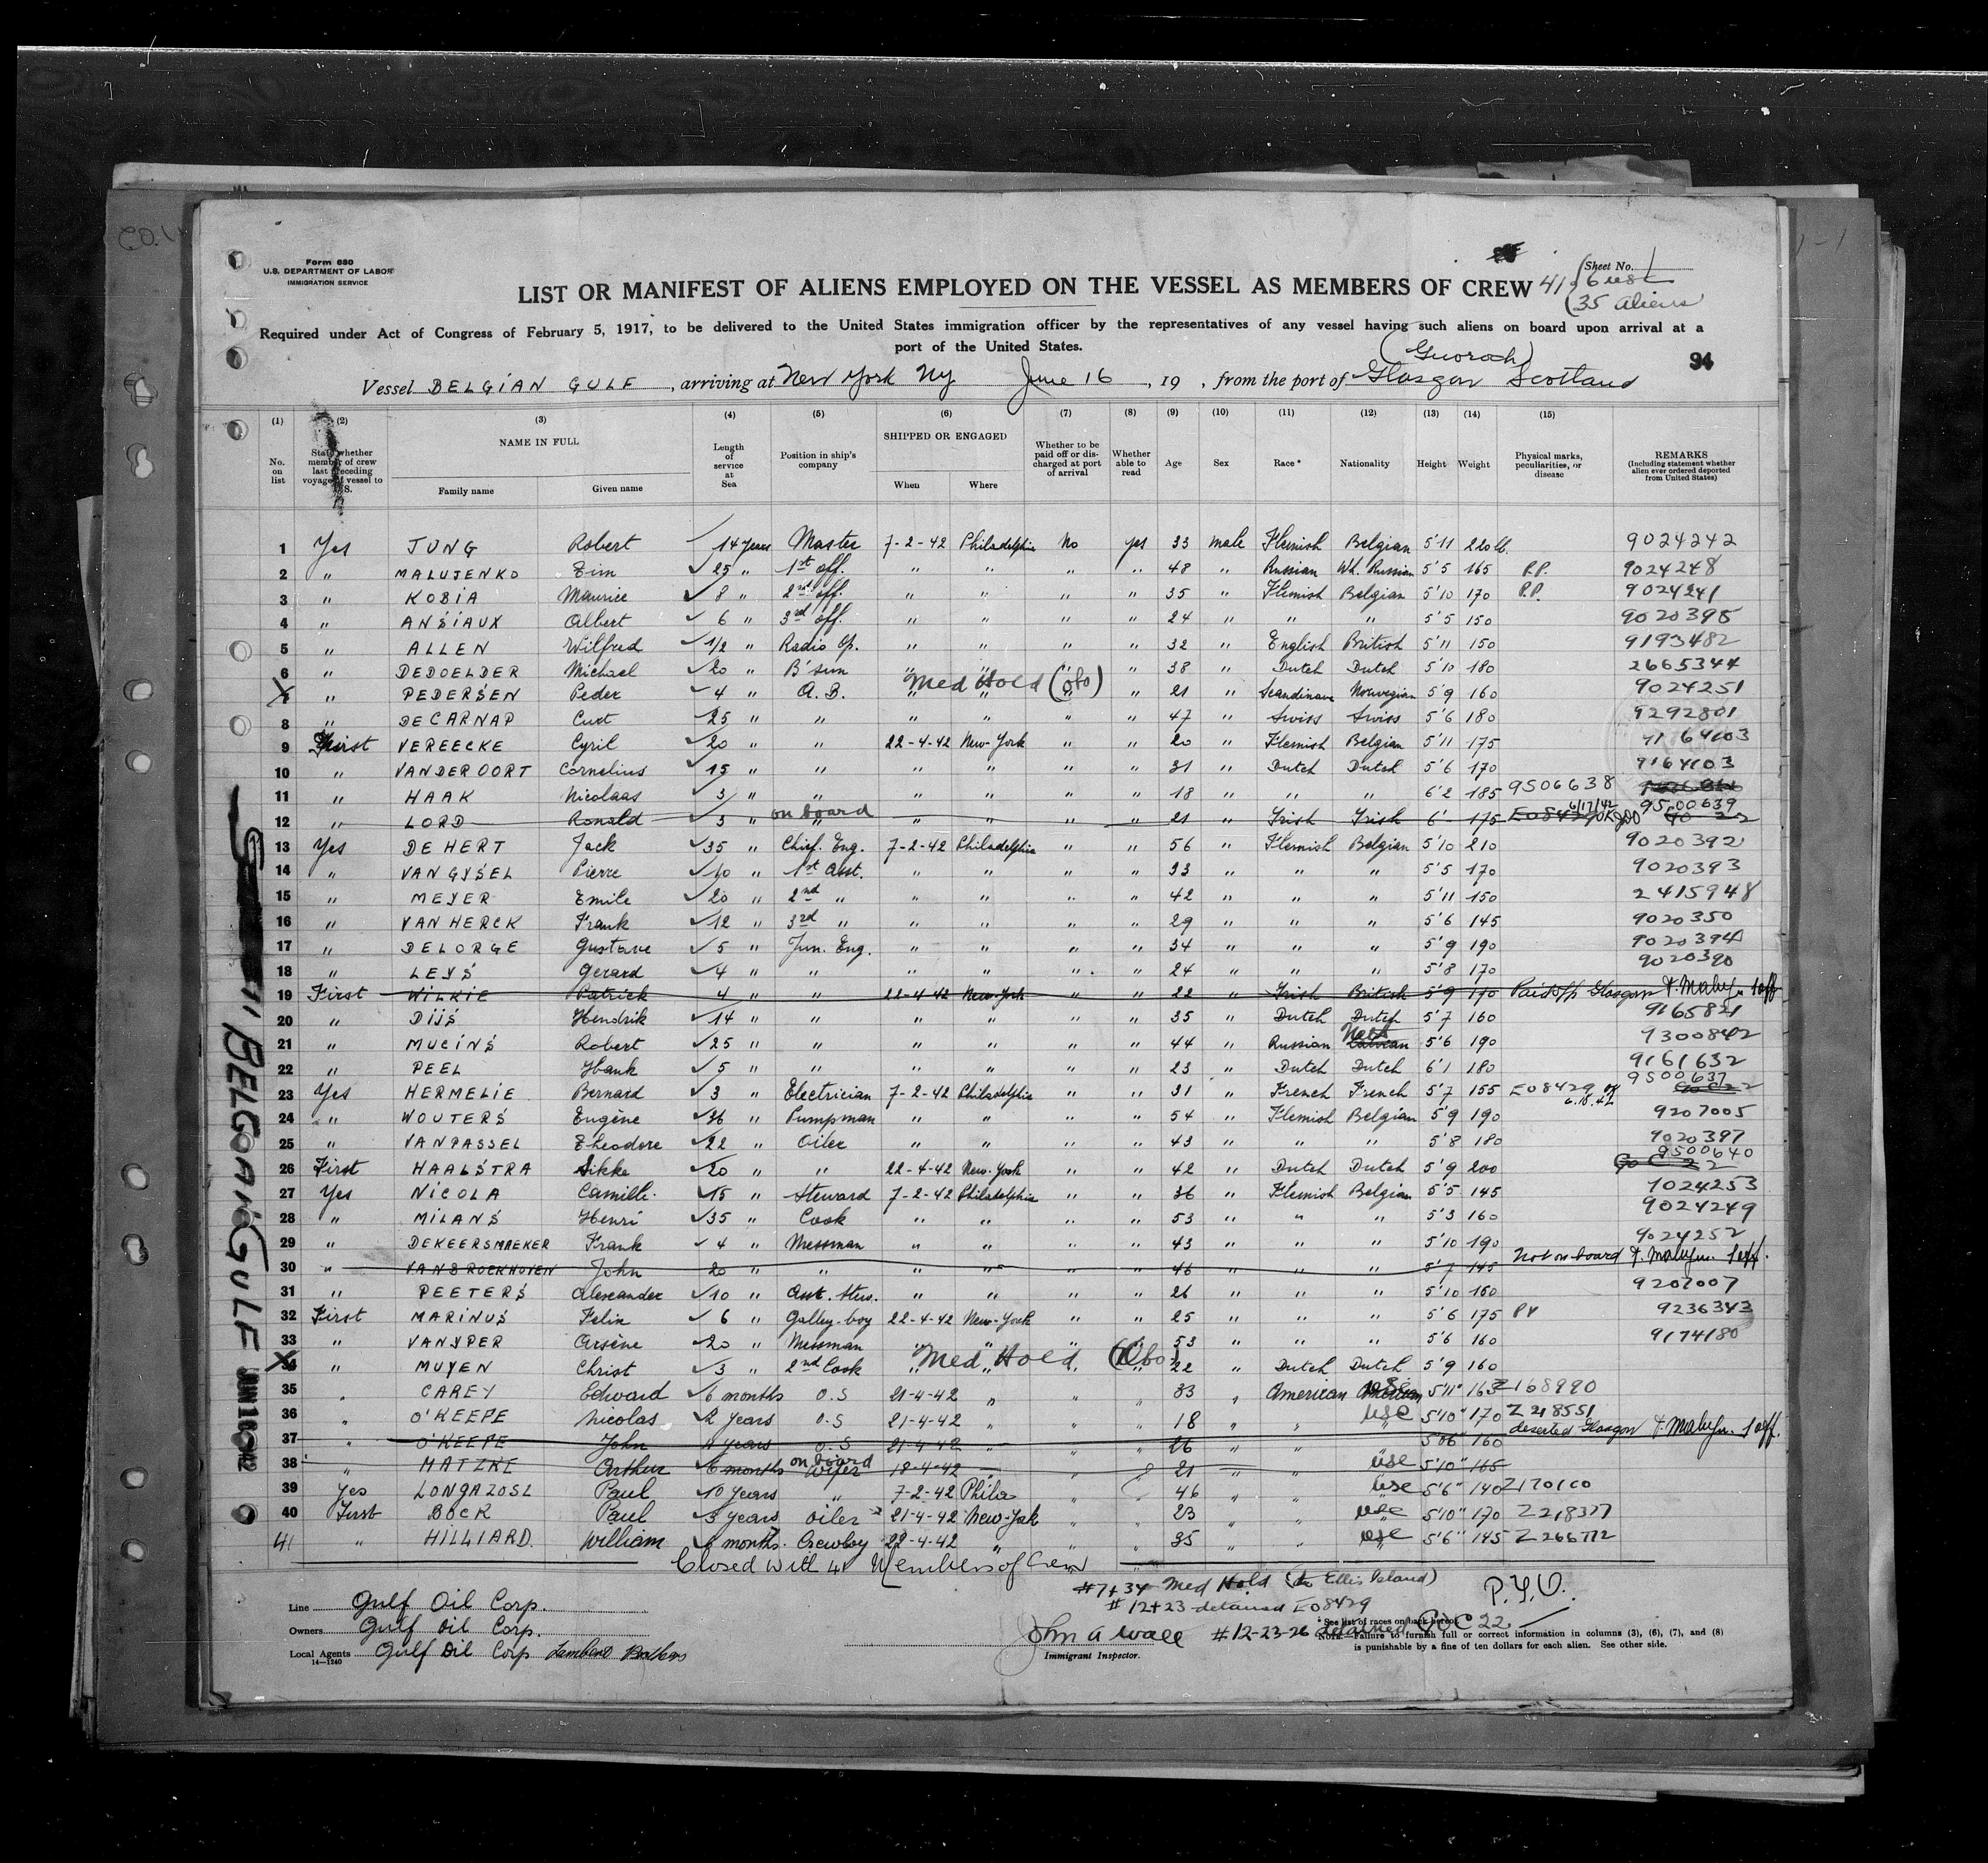 Form 680
U.S. DEPARTMENT OF LABOR
IMMIGRATION SERVICE
Sheet No. 1
LIST OR MANIFEST OF ALIENS EMPLOYED ON THE VESSEL AS MEMBERS OF CREW 41
6 usc
35 aliens
Required under Act of Congress of February 5, 1917, to be delivered to the United States immigration officer by the representatives of any vessel having such aliens on board upon arrival at a
port of the United States.
94
(Guoroch)
Vessel BELGIAN GULF, arriving at New York Ny June 16, 19 , from the port of Glasgow Scotland
(1) (2) (3) (4) (5) (6) (7) (8) (9) (10) (11) (12) (13) (14) (15)
No. on list
State whether member of crew last preceding voyage of vessel to U.S.
NAME IN FULL
Family name Given name
Length of service at Sea
Position in ship's company
SHIPPED OR ENGAGED
When Where
Whether to be paid off or discharged at port of arrival
Whether able to read
Age Sex Race* Nationality Height Weight
Physical marks, peculiarities, or disease
REMARKS
(Including statement whether alien ever ordered deported from United States)
1 Yes JUNG Robert 14 years Master 7-2-42 Philadelphia No yes 33 male Flemish Belgian 5'11 220 lb. 9024242
2 " MALUJENKO Tim 25 " 1st off. " " " " 48 " Russian Wh. Russian 5'5 165 P.P. 9024248
3 " KOBIA Maurice 8 " 2nd off. " " " " 35 " Flemish Belgian 5'10 170 P.P. 9024241
4 " ANSIAUX Albert 6 " 3rd off. " " " " 24 " " " 5'5 150 9020395
5 " ALLEN Wilfred 1/2 " Radio Op. " " " " 32 " English British 5'11 150 9193482
6 " DEDOELDER Michael 20 " B'sun " " " " 38 " Dutch Dutch 5'10 180 2665344
Med Hold (obo)
7 " PEDERSEN Peder 4 " A.B. " " " " 21 " Scandinave Norwegian 5'9 160 9024251
8 " DECARNAP Curt 25 " " " " " " 47 " Swiss Swiss 5'6 180 9292801
9 First VEREECKE Cyril 20 " " 22-4-42 New-York " " 20 " Flemish Belgian 5'11 175
10 " VANDEROORT Cornelius 15 " " " " " " 31 " Dutch Dutch 5'6 170 9164103
11 " HAAK Nicolaas 3 " " " " " " 18 " " " 6'2 185 9506638
on board 6/17/42 9500639
12 " LORD Ronald 3 " " " " " " 21 " Irish Irish 6' 175 E08429
13 Yes DE HERT Jack 35 " Chief. Eng. 7-2-42 Philadelphia " " 56 " Flemish Belgian 5'10 210 9020392
14 " VAN GYSEL Pierre 10 " 1st Asst. " " " " 33 " " " 5'5 170 9020393
15 " MEYER Emile 20 " 2nd " " " " " 42 " " " 5'11 150 2415948
16 " VAN HERCK Frank 12 " 3rd " " " " " 29 " " " 5'6 145 9020350
17 " DELORGE Gustave 5 " Jun. Eng. " " " " 34 " " " 5'9 190 9020394
18 " LEYS Gerard 4 " " " " " " 24 " " " 5'8 170 9020390
19 First WILKIE Patrick 4 " " 22-4-42 New-York " " 22 " Irish British 5'9 170 Paid off Glasgow
20 " DIJS Hendrik 14 " " " " " " 35 " Dutch Dutch 5'7 160 9165821
21 " MUCINS Robert 25 " " " " " " 44 " Russian 5'6 190 9300842
22 " PEEL Hank 5 " " " " " " 23 " Dutch Dutch 6'1 180 9161632
9500637
23 Yes HERMELIE Bernard 3 " Electrician 7-2-42 Philadelphia " " 31 " French French 5'7 155 E08429
24 " WOUTERS Eugène 36 " Pumpman " " " " 54 " Flemish Belgian 5'9 190 9207005
25 " VANPASSEL Theodore 22 " Oiler " " " " 43 " " " 5'8 180 9020397
9500640
26 First HAALSTRA Sikke 20 " " 22-4-42 New-York " " 42 " Dutch Dutch 5'9 200
27 Yes NICOLA Camille. 15 " Steward 7-2-42 Philadelphia " " 36 " Flemish Belgian 5'5 145 9024253
28 " MILANS Henri 35 " Cook " " " " 53 " " " 5'3 160 9024249
29 " DEKEERSMAEKER Frank 4 " Messman " " " " 43 " " " 5'10 190 9024252
30 " VANBROEKHOVEN John 20 " " " " " " 46 " " " 5'7 145 Not on board
31 " PEETERS Alexander 10 " Asst. Stew. " " " " 26 " " " 5'10 160 9207007
32 First MARINUS Felix 6 " Galley-boy 22-4-42 New-York " " 25 " " " 5'6 175 PV 9236343
33 " VANYPER Arsène 20 " Messman " " " " 53 " " " 5'6 160 9174180
Med Hold (Obo)
34 " MUYEN Christ 3 " 2nd Cook " " " " 22 " Dutch Dutch 5'9 160
35 " CAREY Edward 6 months O.S 21-4-42 " " " 33 " American American 5'11" 163 Z168990
36 " O'KEEFE Nicolas 2 years O.S 21-4-42 " " " 18 " " usc 5'10" 170 Z218551
37 " O'KEEFE John 4 years O.S 21-4-42 " " " 26 " " 5'06" 160 deserted Glasgow
on board
38 " MATZKE Arthur 6 months Wifer 18-4-42 " " 21 " " usc 5'10" 165
39 yes LONGAZOSL Paul 10 years " 7-2-42 Phila " 46 " " usc 5'6" 140 Z170100
40 First BOCK Paul 3 years oiler 21-4-42 New-York " " 23 " " usc 5'10" 170 Z218377
41 " HILLIARD. William months. Crewboy 22-4-42 " " " 35 " " usc 5'6" 145 Z266772
Closed with 41 Members of Crew
#7+34 Med Hold (to Ellis Island)
#12+23 detained E08429
P.Y.O.
Line Gulf Oil Corp.
Owners Gulf Oil Corp.
Local Agents Gulf Oil Corp Lambert Brothers
14—1240
John A Wall
Immigrant Inspector.
#12-23-26 detained POC 22
* See list of races on back hereof.
NOTE.—Failure to furnish full or correct information in columns (3), (6), (7), and (8)
is punishable by a fine of ten dollars for each alien. See other side.
BELGIAN GULF
JUN 16 1942